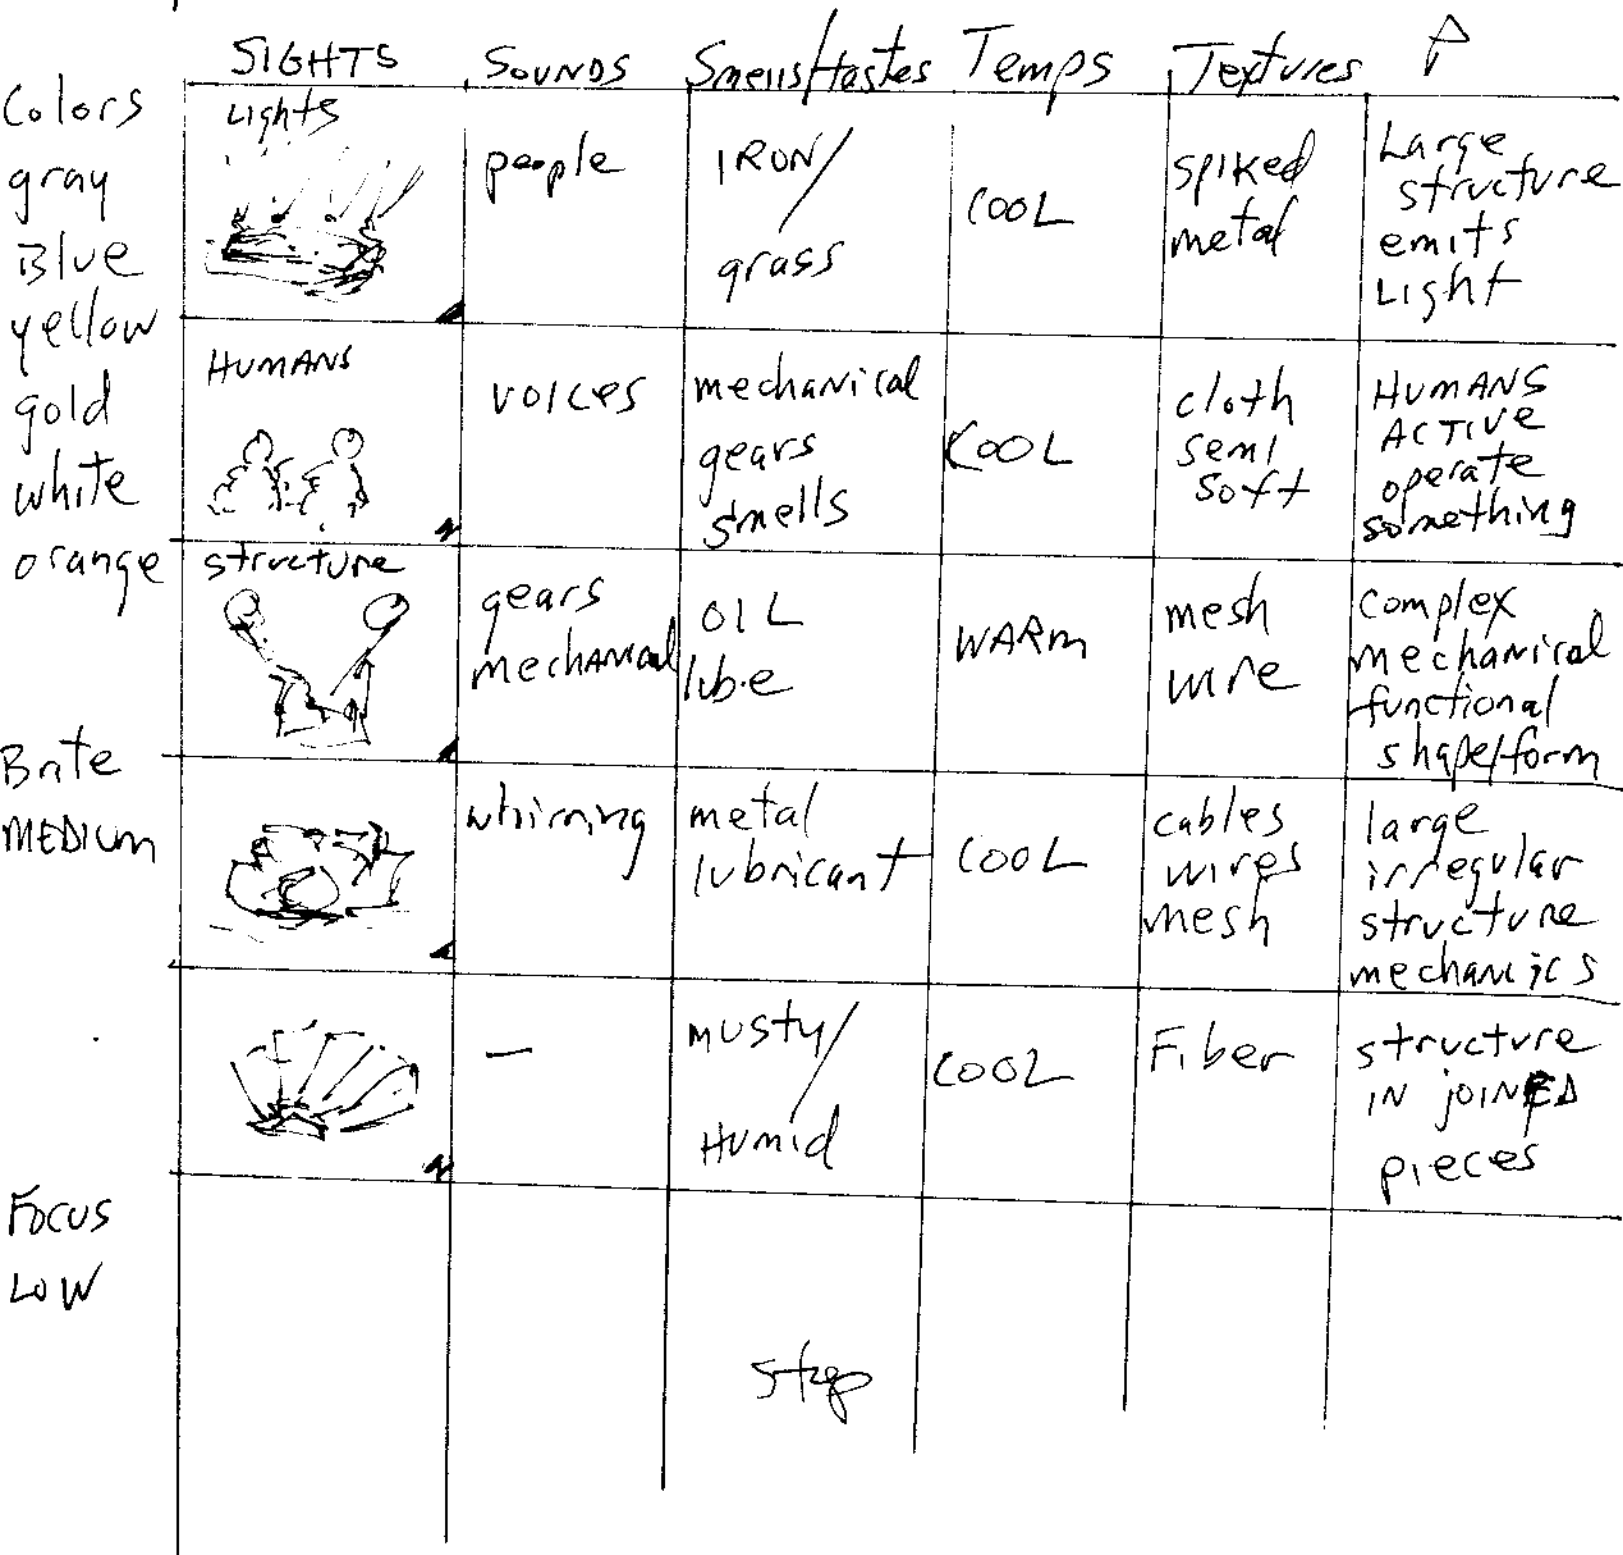 SIGHTS SOUNDS Smells/tastes Temps Textures
Colors
gray
Blue
yellow
gold
white
orange
Brite
MEDIUM
Focus
LOW
Lights
people
IRON/
grass
COOL
spiked
metal
Large
structure
emits
Light
HUMANS
voices
mechanical
gears
smells
COOL
cloth
semi
soft
HUMANS
ACTIVE
operate
something
structure
gears
mechanical
OIL
lube
WARM
mesh
wire
complex
mechanical
functional
shape/form
whirring
metal
lubricant
COOL
cables
wires
mesh
large
irregular
structure
mechanics
—
musty/
Humid
COOL
Fiber
structure
IN JOINED
pieces
stop